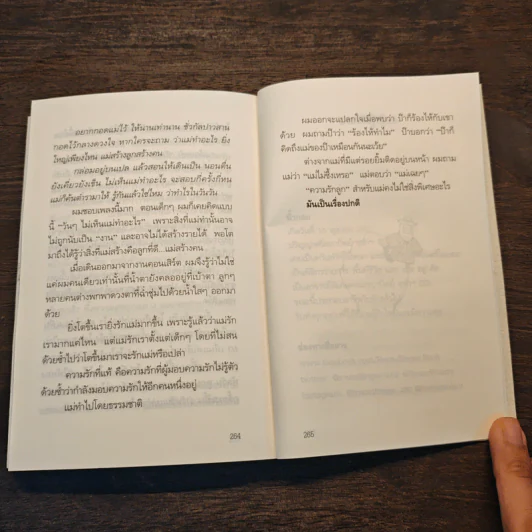 อยากกอดแม่ไว้ ให้นานเท่านาน ชั่วกัลปาวสาน
กอดไว้กลางดวงใจ หากใครจะถาม ว่าแม่ทำอะไร ยิ่ง
ใหญ่เพียงไหน แม่สร้างลูกสร้างคน
กล่อมอยู่ในเปล แล้วสอนให้เดินเป็น นอนตื่น
ยังเคี่ยวยังเข็น ไม่เห็นแม่ทำอะไร จะสอบกี่ครั้งกี่หน
แม่ก็ค้นตำรามาให้ รู้กันแล้วใช่ไหม ว่าทำไรในวันวัน
ผมชอบเพลงนี้มาก ตอนเด็กๆ ผมก็เคยคิดแบบ
นี้ “วันๆ ไม่เห็นแม่ทำอะไร” เพราะสิ่งที่แม่ทำนั้นอาจ
ไม่ถูกนับเป็น “งาน” และอาจไม่ได้สร้างรายได้ พอโต
มาถึงได้รู้ว่าสิ่งที่แม่สร้างคือลูกที่ดี.. แม่สร้างคน
เมื่อเดินออกมาจากงานคอนเสิร์ต ผมจึงรู้ว่าไม่ใช่
แค่ผมคนเดียวเท่านั้นที่น้ำตายังคลออยู่ที่เบ้าตา ลูกๆ
หลายคนต่างพกพาดวงตาที่ฉ่ำชุ่มไปด้วยน้ำใสๆ ออกมา
ด้วย
ยิ่งโตขึ้นเรายิ่งรักแม่มากขึ้น เพราะรู้แล้วว่าแม่รัก
เรามากแค่ไหน แต่แม่รักเราตั้งแต่เด็กๆ โดยที่ไม่สน
ด้วยซ้ำไปว่าโตขึ้นมาเราจะรักแม่หรือเปล่า
ความรักที่แท้ คือความรักที่ผู้มอบความรักไม่รู้ตัว
ด้วยซ้ำว่ากำลังมอบความรักให้อีกคนหนึ่งอยู่
แม่ทำไปโดยธรรมชาติ
264
ผมออกจะแปลกใจเมื่อพบว่า ป๊าก็ร้องไห้กับเขา
ด้วย ผมถามป๊าว่า “ร้องไห้ทำไม” ป๊าบอกว่า “ป๊าก็
คิดถึงแม่ของป๊าเหมือนกันนะเว้ย”
ต่างจากแม่ที่มีแต่รอยยิ้มติดอยู่บนหน้า ผมถาม
แม่ว่า “แม่ไม่ซึ้งเหรอ” แม่ตอบว่า “แม่เฉยๆ”
“ความรักลูก” สำหรับแม่คงไม่ใช่สิ่งพิเศษอะไร
มันเป็นเรื่องปกติ
265